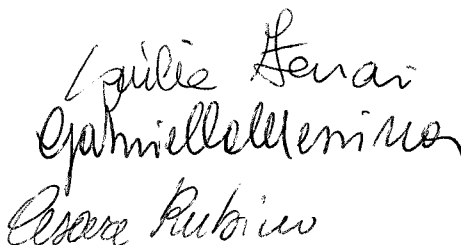 Emilia Ferrari
Gabriella Messina
Cesare Rubino